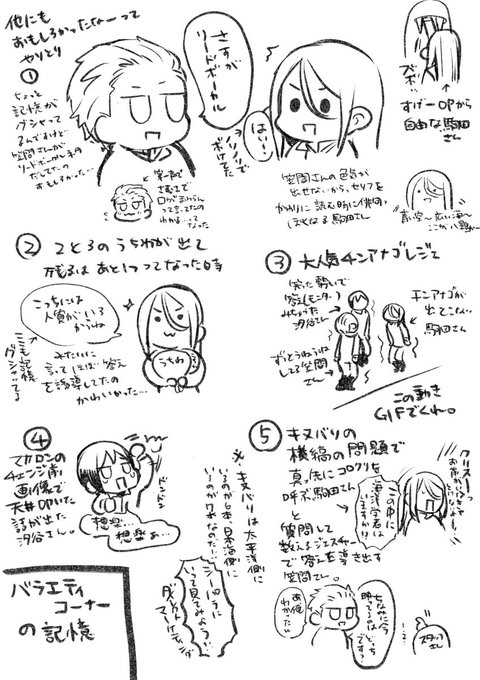 他にも
おもしろかったなーって
やりとり
①
ちょっと
記憶が
グシャって
るんですけど
笠間さんが
リードボーカルネタ
だしてたの
おもしろかった…
さすが
リードボーカル
はーい!
ノリノリで
ボケてた
ズボ
すげーOPから
自由な駒田
さん
笠間さんの色気が
出せないから、セリフを
かわりに読む時に俳団
ぽくなる駒田さん
青い空〜広い海〜
②2と3のうちわが出て
残るはあと1つってなった時
こっちには
人質がいる
からね
うちわ
ここも記憶
グシってる
みたいに
言ってほぼ答え
を誘導してたの
かわいかった…
③大人気チンアナゴレジェ
笑った勢いで
答え(モニター)
みちゃった
汐谷さん
チンアナゴが
出てこない
駒田さん
ずっとうねうね
してる笠間
さん
この動き
GIFでくれ。
④
マカロンの
チェンジ前
画像で
天井叩いた
話が出た
汐谷さん。
ドンドン
想楽…
想楽ぁ…
※キヌバリは太平洋側に
いるのが6本、日本海側に
いるのが7本なのだ…
シーパラに
いって見てみよう…
ダイレクト
マーケティング
⑤キヌバリの
横縞の問題で
真っ先にコロクリを
呼ぶ駒田さん
と
質問して
数えるジェスチャー
で答えを導き出す
笠間さん。
クリスー!
この中に
海洋学者は
いますか!?
ちなみに今
映ってるのは
どっち
です?
あ、俺
わかった!!
スタッフ
さん
バラエティ
コーナー
の記憶